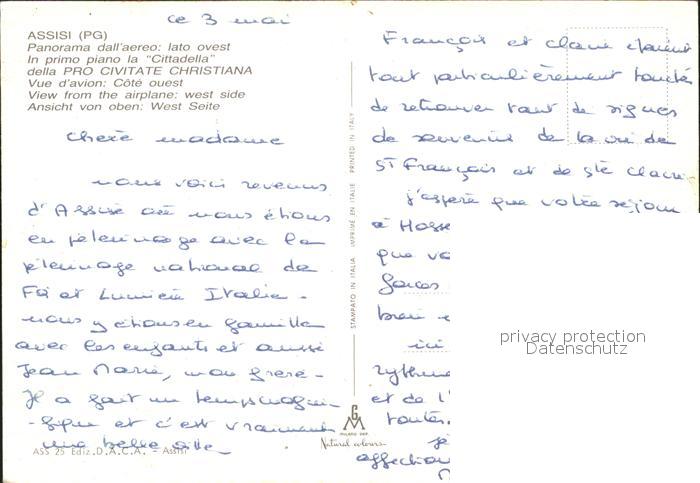 ce 3 mai
ASSISI (PG)
Panorama dall'aereo: lato ovest
In primo piano la "Cittadella"
della PRO CIVITATE CHRISTIANA
Vue d'avion: Côté ouest
View from the airplane: west side
Ansicht von oben: West Seite
Chère madame
nous voici revenus
d'Assise où nous étions
en pèlerinage avec le
pèlerinage national de
Foi et Lumière Italie.
nous y étions en famille
avec les enfants et aussi
Jean Marie, mon frère.
Il a fait un temps magni-
-fique et c'est vraiment
une belle ville.
ASS 25 Ediz. D.A.C.A. - Assisi
STAMPATO IN ITALIA IMPRIMÉ EN ITALIE PRINTED IN ITALY
GM
MILANO DEP.
Natural colours
François et Claire étaient
tout particulièrement touchés
de retrouver tant de signes
de souvenir de la vie de
St François et de Ste Claire
j'espère que votre séjour
à Hosse
que vo
forces
bien
ici
rythme
et de l'
toutes.
je
affection
privacy protection
Datenschutz